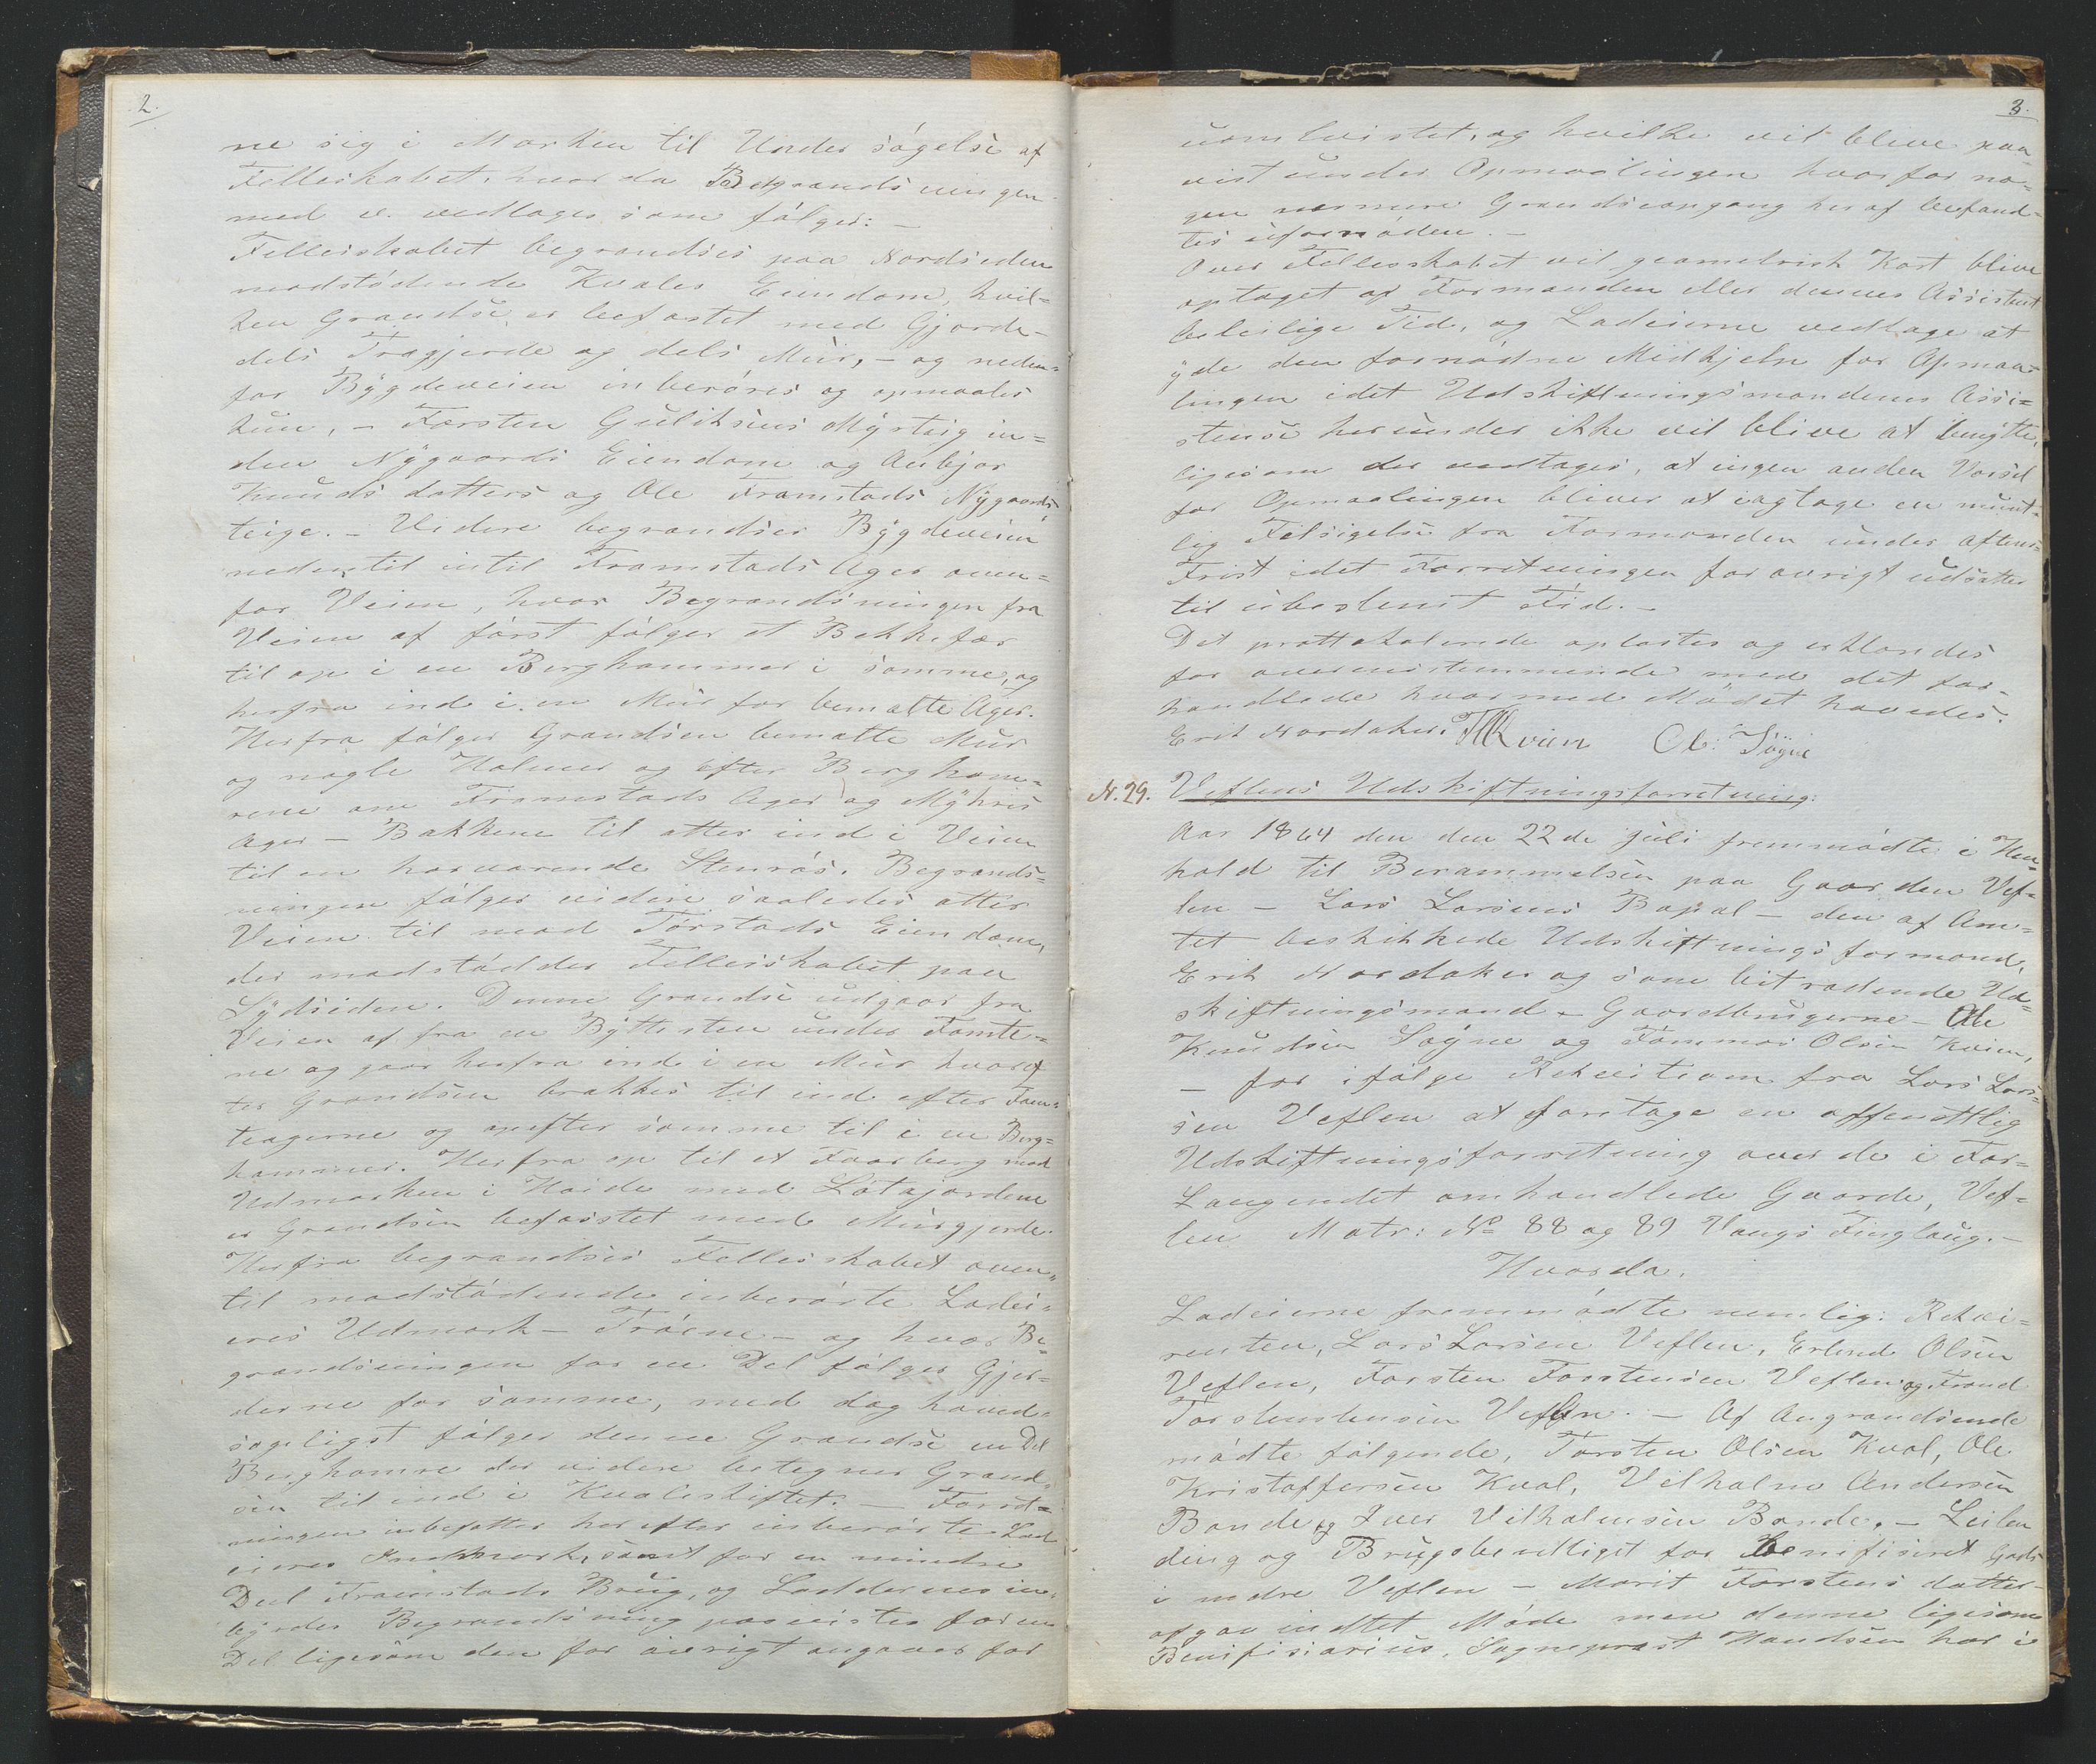 2.
ne sig i Marken til Undersøgelse af
Felleskabet, hvor da Begrændsningen
med v. vedtages som følger: –
Felleiskabet begrændses paa Nordsiden
modstødende Kvales Eiendom, hvil-
ken Grændse er befæstet med Gjerde –
dels Trægjerde og dels Mur, – og neden-
for Bygdeveien inberøres og opmaales
kun, – Torsten Guliksens Myrteig in-
den Nygaards Eiendom og Anbjør
Knudsdatters og Ole Framstads Nygaards
teige. – Videre begrændses Bygdeveien
nedentil intil Framstads Ager oven-
for Veien, hvor Begrændsningen fra
Veien af først følger et Bekkefær
til op i en Berghammer i samme, og
herfra ind i en Mur for bemælte Ager.
Herfra følger Grændsen bemælte Mur
og nogle Holmer og efter Bergham-
rene om Framstads Ager og Myhres
Ager – Bakkene til atter ind i Veien
til en hærværende Stenrøs. Begrænds-
ningen følger videre saaledes atter
Veien til mod Tørstads Eiendom,
der modstødder Felleiskabet paa
Sydsiden. Denne Grændse udgaar fra
Veien af fra en Byttesten under Tomte-
ne og gaar herfra ind i en Mur hvoref
ter Grændsen brækkes til ind efter Tom-
teagerne og opefter samme til i en Berg-
hammer. Herfra op til et Faarberg mod
Udmarken i Høide med Løtajordene
er Grændsen befæstet med Murgjerde.
Herfra begrændses Felleiskabet oven-
til modstødende inberørte Lodei-
eres Udmark – Trøene – og hvor Be-
grændsningen for en Del følger Gjer-
derne for samme, med dog hoved-
sageligst følger denne Grændse en Del
Berghamre der videre betegner Grænd-
sen til ind i Kvaleskiftet. – Forret-
ningen inbefatter herefter inberørte Lod
eieres Indmark, samt for en mindre
Deel Framstads Brug, og Loddernes in-
byrdes Begrændsning paavistes for en
Del ligesom den for øvrigt angaves for
3.
uomtvistet, og hvilke vil blive paa
vist under Opmaalingen hvorfor no-
gen nærmere Grændseopgang heraf befand-
tes ufornøden. –
Over Fellesskabet vil geometrisk Kart blive
optaget af Formanden eller dennes Assistent
beleilige Tid, og Lodeierne vedtage at
yde den fornødne Medhjelp for Opmaa-
lingen idet Udskiftningsmandenes Assi-
stense herunder ikke vil blive at benytte,
ligesom der vedtages, at ingen anden Varsel
for Opmaalingen bliver at iagtage en munt-
lig Tilsigelse fra Formanden under aftens-
Frist idet Forretningen forøvrigt udsættes
til ubestemt Tid. –
Det prottokolerede oplæstes og erklærdes
for overenstemmende med det for-
handlede hvormed Mødet hævedes.
Erik Nordaker. TKvien Ol: Søgne
N. 29. Veflens Udskiftningsforretning:
Aar 1864 den den 22de juli fremmødte i Hen-
hold til Berammelsen paa Gaarden Vef-
len – Lars Larsens Bopæl – den af Am-
tet beskikkede Udskiftningsformand,
Erik Nordaker og som bitrædende Ud-
skiftningsmænd – Gaardbrugerne – Ole
Knudsen Søgne og Tommas Olsen Kvien,
– for ifølge Rekvisition fra Lars Lar-
sen Veflen at foretage en offenttlig
Udskiftningsforretning over de i For-
langendet omhandlede Gaarde, Vef-
len Matr: No 88 og 89 Vangs Tinglaug. –
Hvorda,
Lodeierne fremmødte nemlig: Rekvi-
renten, Lars Larsen Veflen, Erlend Olsen
Veflen, Torsten Torstensen Veflen og Trond
Torstensensen Veflen. – Af Angrændsende
mødte følgende, Torsten Olsen Kval, Ole
Kristoffersen Kval, Velhalm Andersen
Bonde, og Iver Vilhalmsen Bonde. – Leilen
ding og Brugsberettiget for Benifiseret Gods
i nedre Veflen – Marit Torstensdatter
afgav indtet Møde men denne ligesom
Benifisiarius, Sogneprest Handsen har i